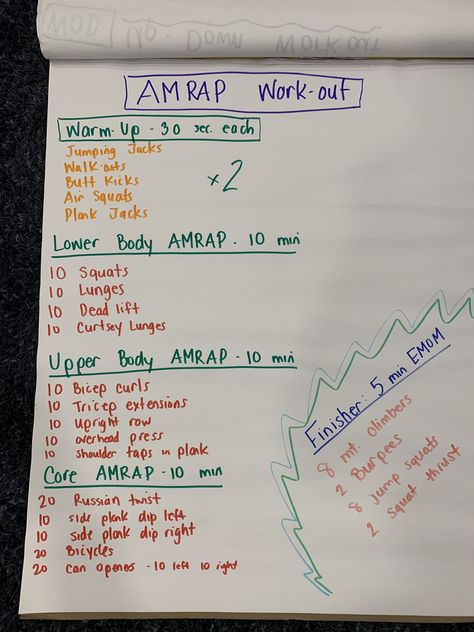 AMRAP Work-out
Warm-Up - 30 sec. each
Jumping Jacks
Walk-outs
Butt Kicks
Air Squats
Plank Jacks
x2
Lower Body AMRAP - 10 min
10 Squats
10 Lunges
10 Dead lift
10 Curtsey Lunges
Upper Body AMRAP - 10 min
10 Bicep curls
10 Tricep extensions
10 Upright row
10 overhead press
10 shoulder taps in plank
Core AMRAP - 10 min
20 Russian twist
10 side plank dip left
10 side plank dip right
20 Bicycles
20 Can openers - 10 left 10 right
Finisher: 5 min EMOM
8 mt. climbers
2 Burpees
8 Jump squats
2 Squat thrust